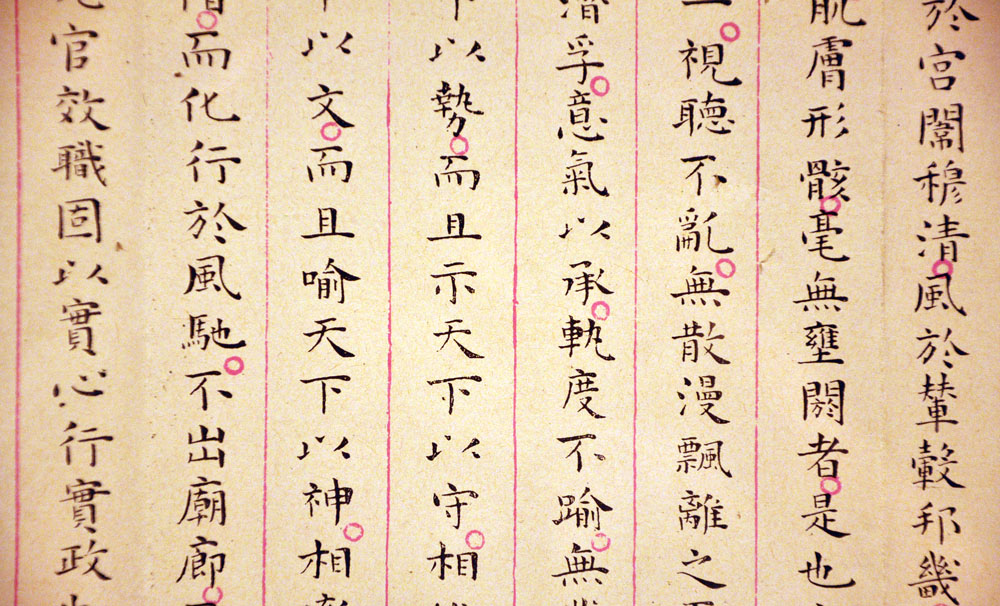 於宮闈穆清風於輦轂邦畿
肌膚形骸毫無壅閼者是也
一視聽不亂無散漫飄離之
潛孚意氣以承軌度不踰無
下以勢而且示天下以守相
下以文而且喻天下以神相
而化行於風馳不出廟廊
官效職固以實心行實政